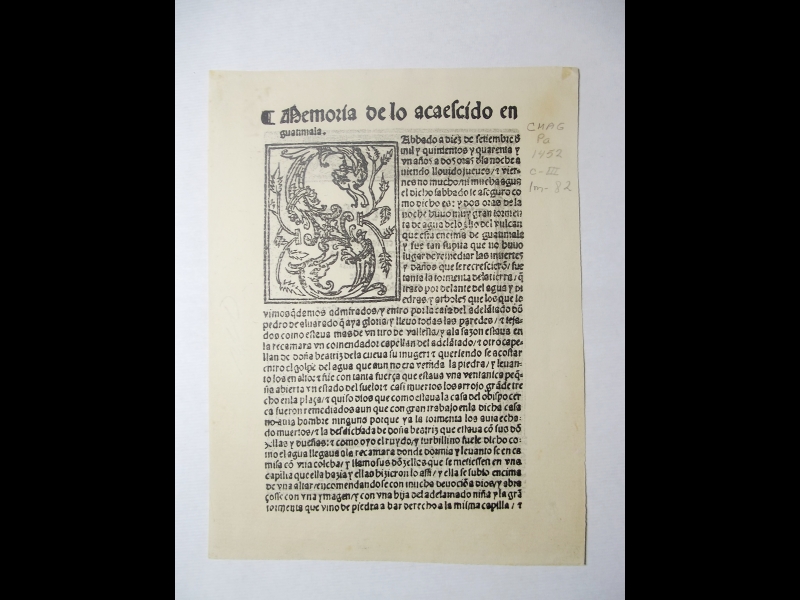 ¶ Memoria de lo acaescido en
guatimala.
CMAG
Pa
1452
C-III
Im-82
Abbado a diez de setiembre d̃
mil y quinientos y quarenta y
vn años a dos oras dla noche a
uiendo llouido jueues / ⁊ vier-
nes no mucho / ni mucha agua
el dicho sabbado se aseguro co
mo dicho es: y dos oras de la
noche huuo muy gran tormen
ta de agua de lo alto del vulcan
que esta encima de guatimala
y fue tan supita que no huuo
lugar de remediar las muertes
y daños que se recrescierõ / fue
tanta la tormenta de la tierra / q̃
traxo por delante del agua y pi
edras y arboles que los que lo
vimos q̃demos admirados / y entro por la casa del adelãtado dõ
pedro de aluarado q̃ aya gloria / y lleuo todas las paredes / ⁊ teja-
dos como estaua mas de vn tiro de vallesta / y a la sazon estaua en
la recamara vn comendador capellan del adelãtado / ⁊ otro cape-
llan de doña beatriz de la cueua su muger: ⁊ queriendo se acostar
entro el golpe del agua que aun no era venida la piedra / y leuan-
to los en alto: ⁊ fue con tanta fuerça que estaua vna ventanica peq̃
ña abierta vn estado del suelo: ⁊ casi muertos los arrojo grãde tre
cho en la plaça / ⁊ quiso dios que como estaua la casa del obispo cer
ca fueron remediados aun que con gran trabajo en la dicha casa
no auia hombre ninguno porque ya la tormenta los auia echa-
do muertos / ⁊ la desdichada de doña beatriz que estaua cõ sus dõ
zellas y dueñas: ⁊ como oyo el ruydo / y turbillino fuele dicho co-
mo el agua llegaua a la recamara donde dormia y leuanto se en ca
misa cõ vna colcha / y llamo sus dõzellas que se metiessen en vna
capilla que ella hazia y ellas hizieron lo assi / y ella se subio encima
de vna altar / encomendando se con mucha deuociõ a dios / y abra
çosse con vna ymagen / y con vna hija del adelantado niña y la grã
tormenta que vino de piedra a dar derecho a la misma capilla / ⁊